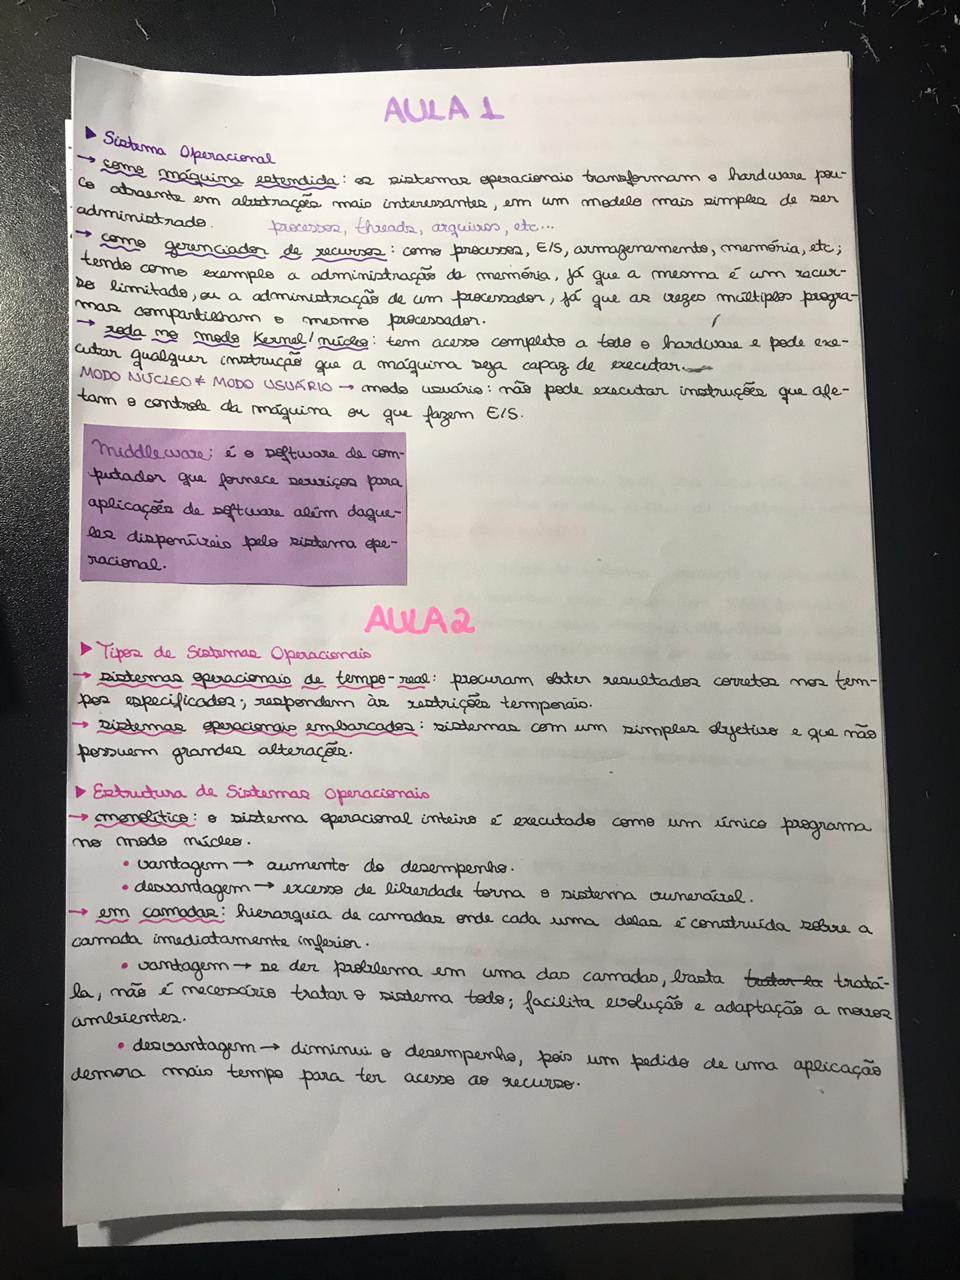 AULA 1
▶ Sistema Operacional
→ como máquina estendida: os sistemas operacionais transformam o hardware pou-
co atraente em abstrações mais interessantes, em um modelo mais simples de ser
administrado. processos, threads, arquivos, etc...
→ como gerenciador de recursos: como processos, E/S, armazenamento, memória, etc;
tendo como exemplo a administração da memória, já que a mesma é um recur-
so limitado, ou a administração de um processador, já que as vezes múltiplos progra-
mas compartilham o mesmo processador.
→ roda no modo Kernel/núcleo: tem acesso completo a todo o hardware e pode exe-
cutar qualquer instrução que a máquina seja capaz de executar.
MODO NÚCLEO ≠ MODO USUÁRIO → modo usuário: não pode executar instruções que afe-
tam o controle da máquina ou que fazem E/S.
Middleware: é o software de com-
putador que fornece serviços para
aplicações de software além daque-
les disponíveis pelo sistema ope-
racional.
AULA 2
▶ Tipos de Sistemas Operacionais
→ sistemas operacionais de tempo-real: procuram obter resultados corretos nos tem-
pos especificados; respondem às restrições temporais.
→ sistemas operacionais embarcados: sistemas com um simples objetivo e que não
possuem grandes alterações.
▶ Estrutura de Sistemas Operacionais
→ monolítico: o sistema operacional inteiro é executado como um único programa
no modo núcleo.
• vantagem → aumento do desempenho.
• desvantagem → excesso de liberdade torna o sistema vunerável.
→ em camadas: hierarquia de camadas onde cada uma delas é construída sobre a
camada imediatamente inferior.
• vantagem → se der problema em uma das camadas, basta tratar la tratá-
la, não é necessário tratar o sistema todo; facilita evolução e adaptação a novos
ambientes.
• desvantagem → diminui o desempenho, pois um pedido de uma aplicação
demora mais tempo para ter acesso ao recurso.